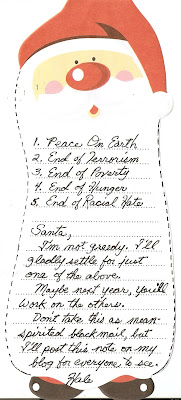 1. Peace On Earth
2. End of Terrorism
3. End of Poverty
4. End of Hunger
5. End of Racial Hate
Santa,
I'm not greedy. I'll
gladly settle for just
one of the above.
Maybe next year, you'll
work on the others.
Don't take this as mean-
spirited blackmail, but
I'll post this note on my
blog for everyone to see.
Hale